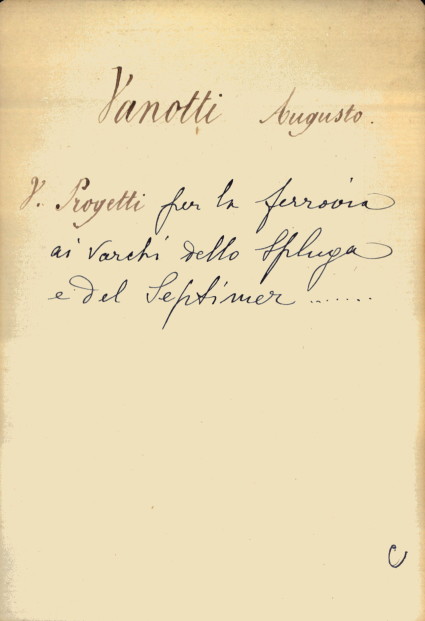 Vanotti Augusto.
V. Progetti per la ferrovia
ai varchi dello Spluga
e del Septimer .......
C